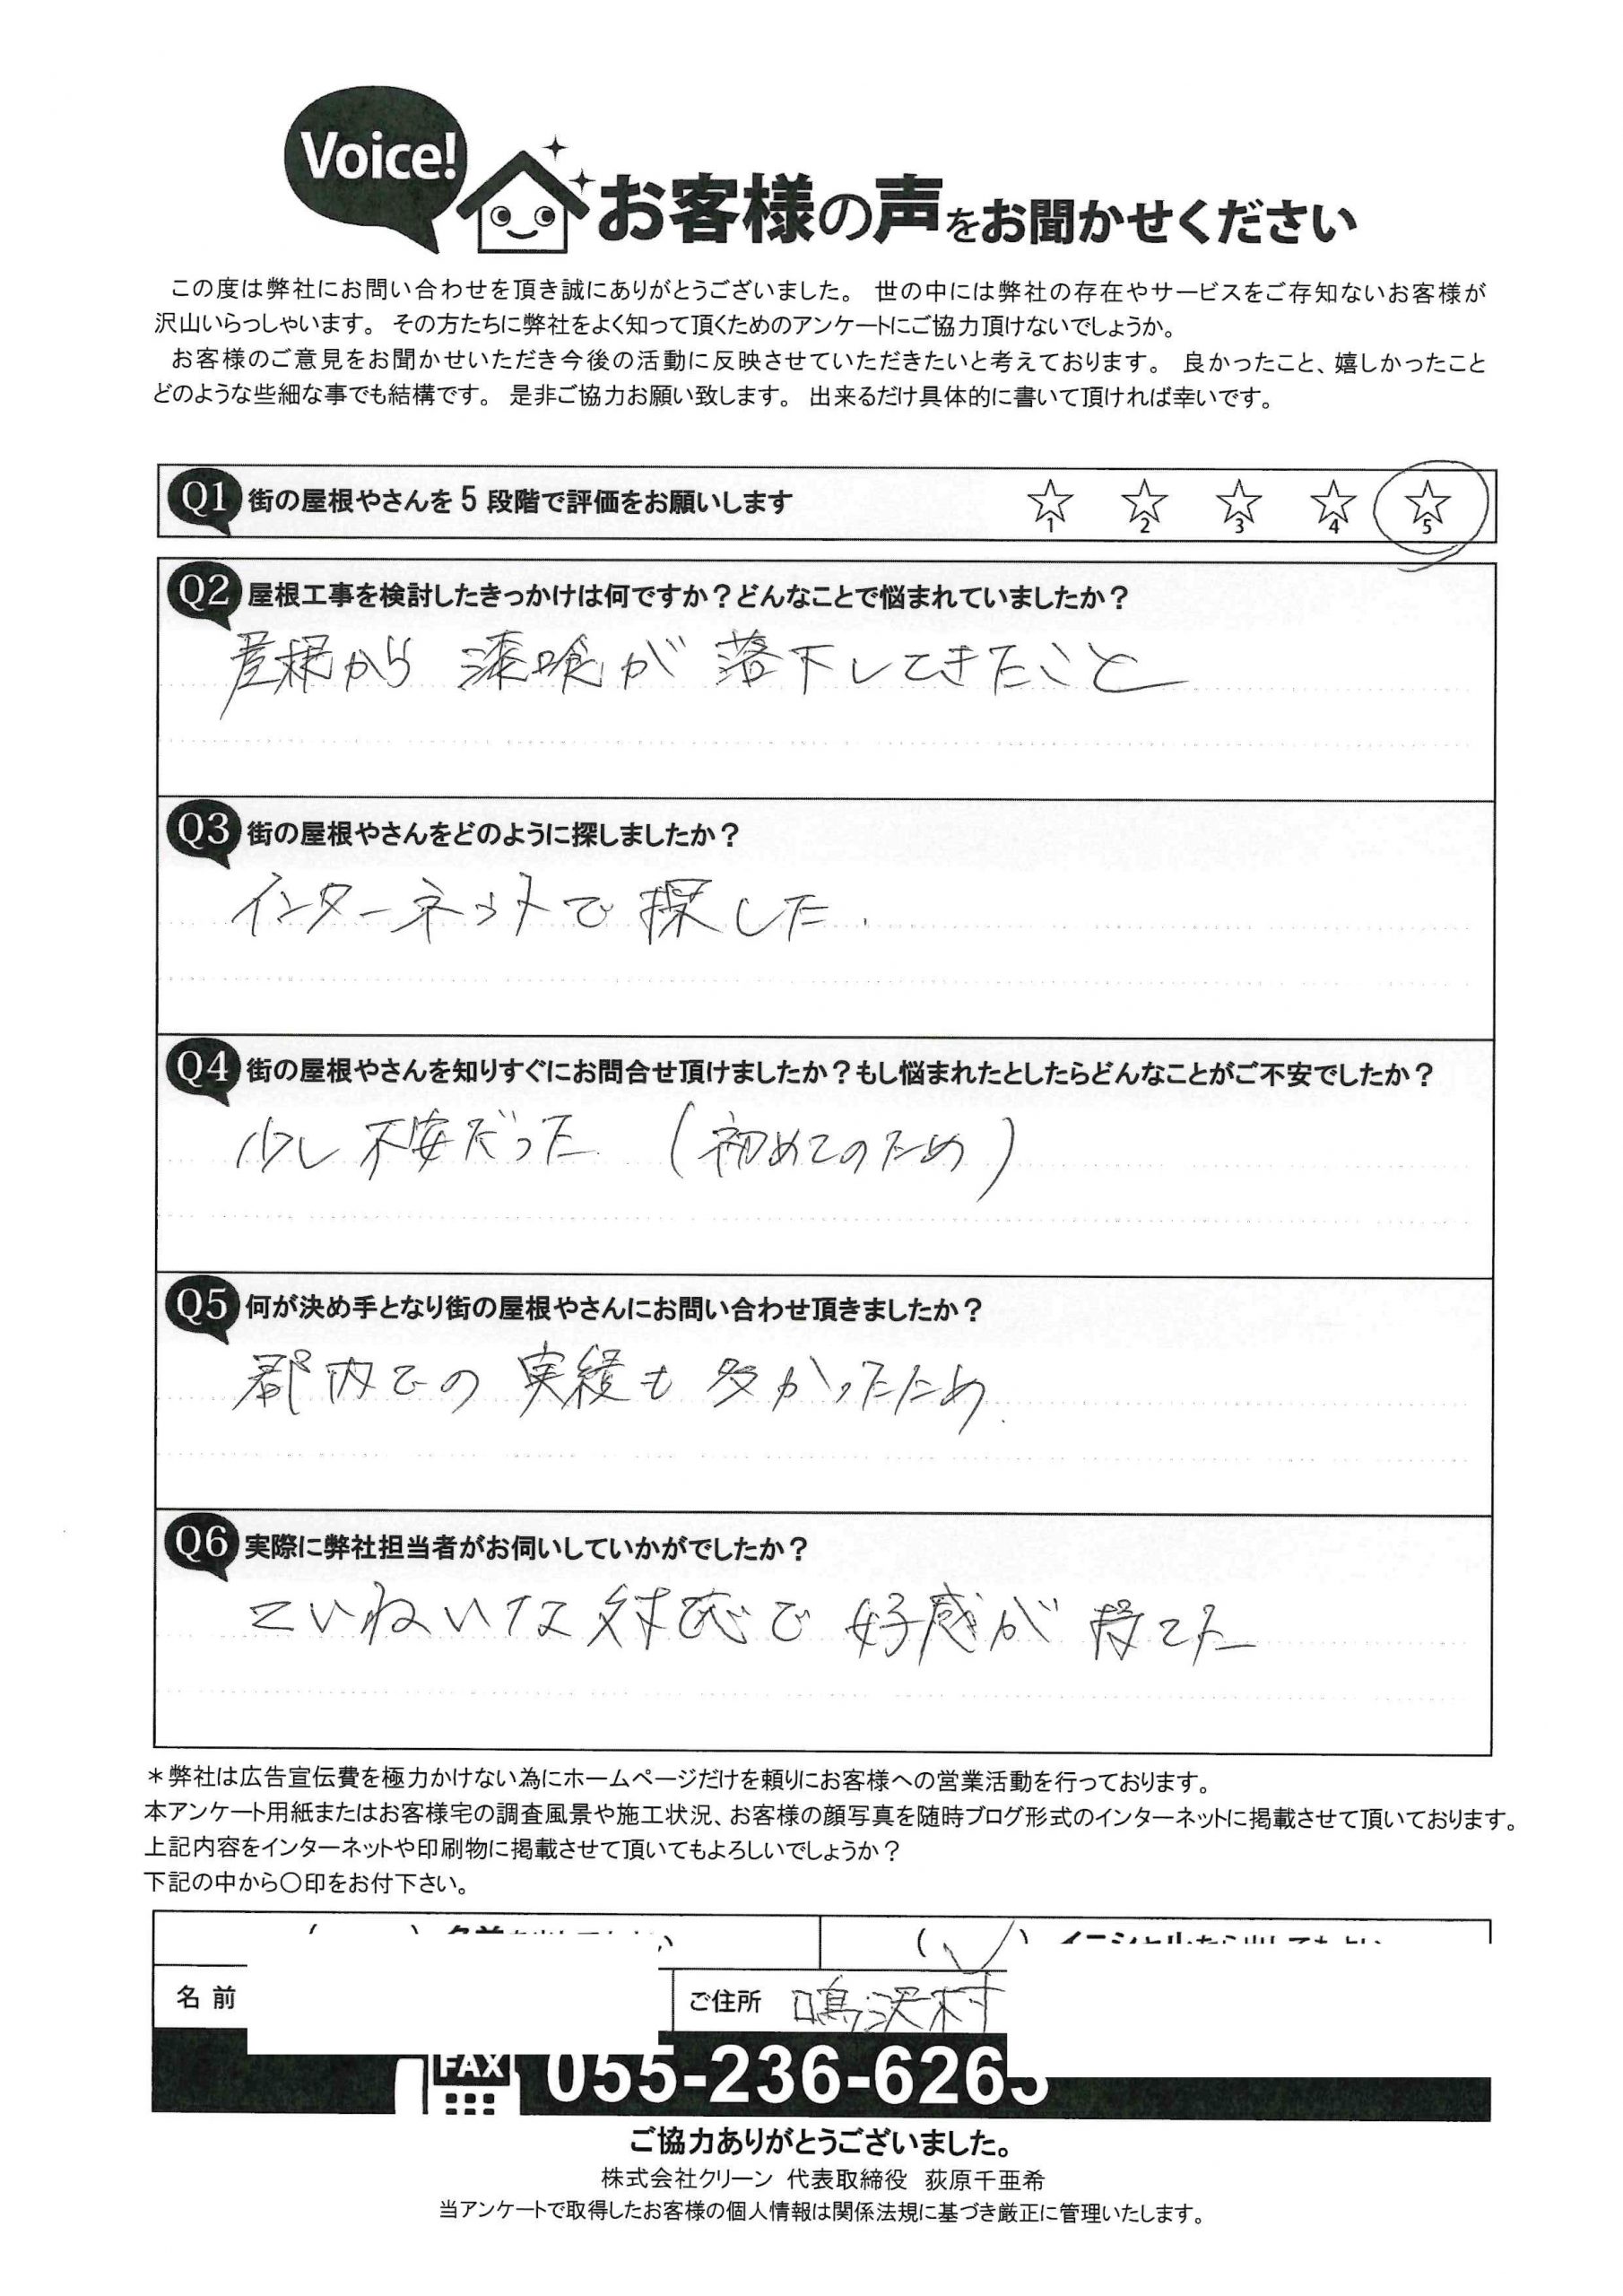 Voice!
お客様の声をお聞かせください
この度は弊社にお問い合わせを頂き誠にありがとうございました。 世の中には弊社の存在やサービスをご存知ないお客様が
沢山いらっしゃいます。 その方たちに弊社をよく知って頂くためのアンケートにご協力頂けないでしょうか。
お客様のご意見をお聞かせいただき今後の活動に反映させていただきたいと考えております。 良かったこと、嬉しかったこと
どのような些細な事でも結構です。 是非ご協力お願い致します。 出来るだけ具体的に書いて頂ければ幸いです。
Q1 街の屋根やさんを5段階で評価をお願いします ☆1 ☆2 ☆3 ☆4 ☆5
Q2 屋根工事を検討したきっかけは何ですか？どんなことで悩まれていましたか？
屋根から 漆喰が 落下してきたこと
Q3 街の屋根やさんをどのように探しましたか？
インターネットで探した.
Q4 街の屋根やさんを知りすぐにお問合せ頂けましたか？もし悩まれたとしたらどんなことがご不安でしたか？
少し不安だった (初めてのため)
Q5 何が決め手となり街の屋根やさんにお問い合わせ頂きましたか？
郡内での 実績も 多かったため.
Q6 実際に弊社担当者がお伺いしていかがでしたか？
ていねいな対応で 好感が 持てた
＊弊社は広告宣伝費を極力かけない為にホームページだけを頼りにお客様への営業活動を行っております。
本アンケート用紙またはお客様宅の調査風景や施工状況、お客様の顔写真を随時ブログ形式のインターネットに掲載させて頂いております。
上記内容をインターネットや印刷物に掲載させて頂いてもよろしいでしょうか？
下記の中から〇印をお付下さい。
名前 ご住所 鳴沢村
FAX 055-236-6263
ご協力ありがとうございました。
株式会社クリーン 代表取締役 荻原千亜希
当アンケートで取得したお客様の個人情報は関係法規に基づき厳正に管理いたします。